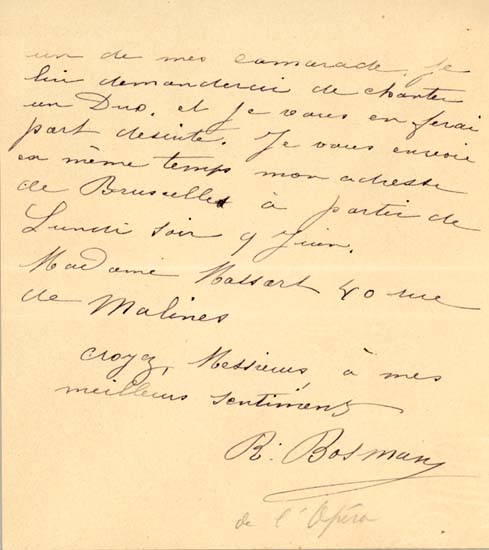 un de mes camarade. je
lui demanderai de chanter
un Duo. et je vous en ferai
part desuite. Je vous envoie
en même temps mon adresse
de Bruxelles à partir de
Lundi soir 9 Juin.
Madame Massart 40 rue
de Malines
croyez, Messieurs, à mes
meilleurs sentiments
R. Bosman
de l'Opéra